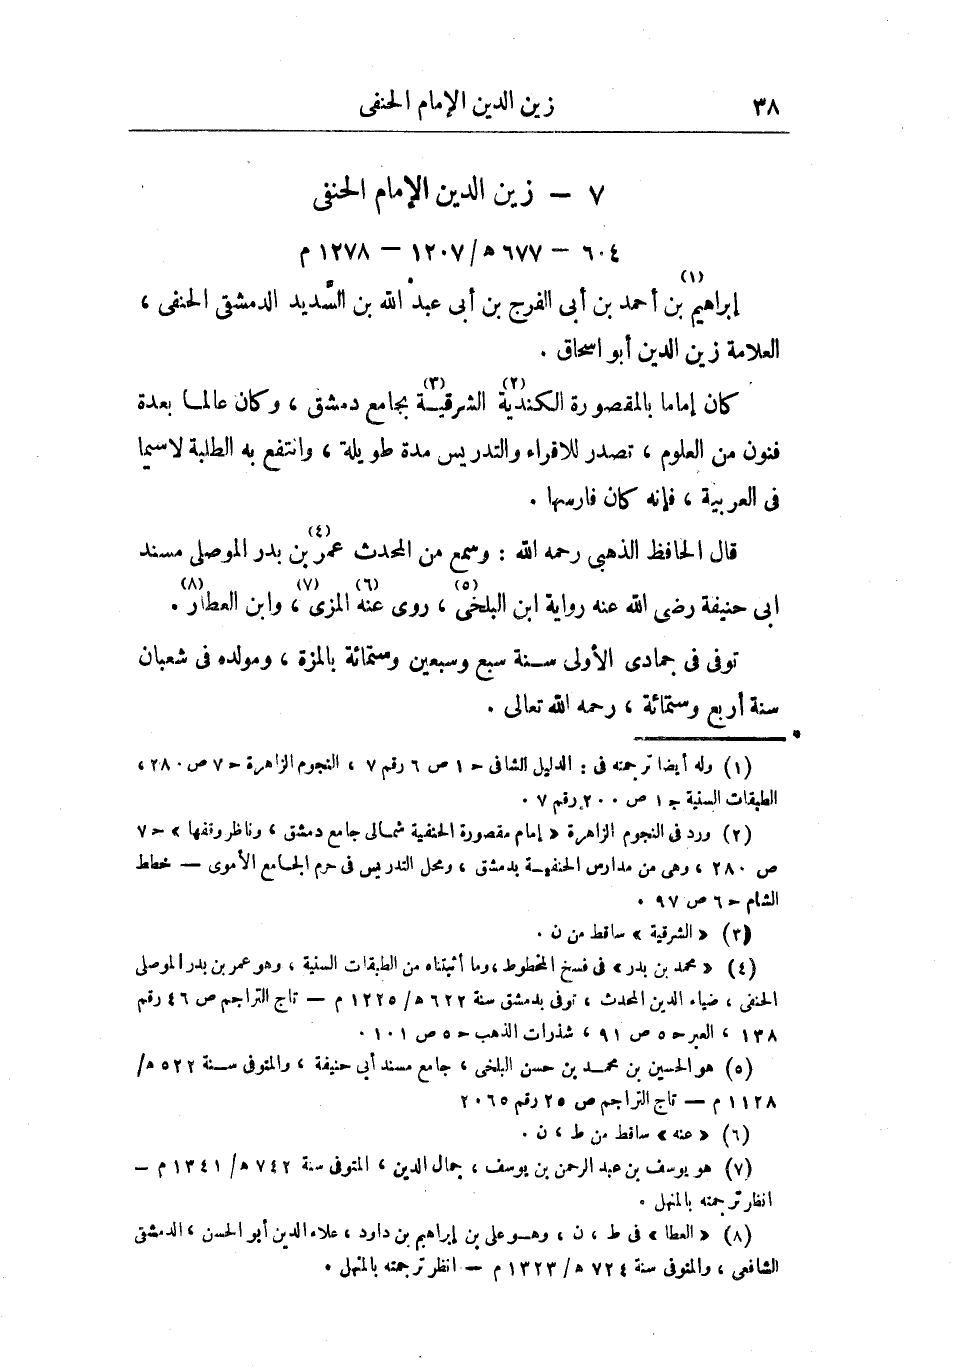 ٣٨
زين الدين الإمام الحنفى
٧ — زين الدين الإمام الحنفى
٦٠٤ — ٦٧٧ هـ/ ١٢٠٧ — ١٢٧٨ م
إبراهيم (١) بن أحمد بن أبى الفرج بن أبى عبد الله بن السَّديد الدمشقى الحنفى ،
العلامة زين الدين أبو اسحاق .
كان إماما بالمقصورة الكندية (٢) الشرقيــة (٣) بجامع دمشق ، وكان عالمــا بعدة
فنون من العلوم ، تصدر للاقراء والتدريس مدة طويلة ، وانتفع به الطلبة لاسيما
فى العربية ، فإنه كان فارسها .
قال الحافظ الذهبى رحمه الله : وسمع من المحدث عمر (٤) بن بدر الموصلى مسند
ابى حنيفة رضى الله عنه رواية ابن البلخى (٥) ، روى عنه (٦) المزى (٧) ، وابن العطار (٨) .
توفى فى جمادى الأولى ســنة سبع وسبعين وستمائة بالمزة ، ومولده فى شعبان
سنة أربع وستمائة ، رحمه الله تعالى .
(١) وله أيضا ترجمته فى : الدليل الشافى حـ ١ ص ٦ رقم ٧ ، النجوم الزاهرة حـ ٧ ص ٢٨٠ ،
الطبقات السنية جـ ١ ص ٢٠٠ رقم ٧ .
(٢) ورد فى النجوم الزاهرة « إمام مقصورة الحنفية شمــالى جامع دمشق ، وناظر وقفها » حـ ٧
ص ٢٨٠ ، وهى من مدارس الحنفيــة بدمشق ، ومحل التدريس فى حرم الجــامع الأموى — خطط
الشام حـ ٦ ص ٩٧ .
(٣) « الشرقية » ساقط من ن .
(٤) « محمد بن بدر » فى نسخ المخطوط ، وما أثبتناه من الطبقات السنية ، وهو عمر بن بدر الموصلى
الحنفى ، ضياء الدين المحدث ، توفى بدمشق سنة ٦٢٢ هـ/ ١٢٢٥ م — تاج التراجم ص ٤٦ رقم
١٣٨ ، العبر حـ ٥ ص ٩١ ، شذرات الذهب حـ ٥ ص ١٠١ .
(٥) هو الحسين بن محمــد بن حسن البلخى ، جامع مسند أبى حنيفة ، والمتوفى ســنة ٥٢٢ هـ/
١١٢٨ م — تاج التراجم ص ٢٥ رقم ٢٠٦٥
(٦) « عنه » ساقط من ط ، ن .
(٧) هو يوسف بن عبد الرحمن بن يوسف ، جمال الدين ، المتوفى سنة ٧٤٢ هـ/ ١٣٤١ م —
انظر ترجمته بالمنهل .
(٨) « العطا » فى ط ، ن ، وهــو على بن إبراهيم بن داود ، علاء الدين أبو الحسن ، الدمشقى
الشافعى ، والمتوفى سنة ٧٢٤ هـ/ ١٣٢٣ م — انظر ترجمته بالمنهل .